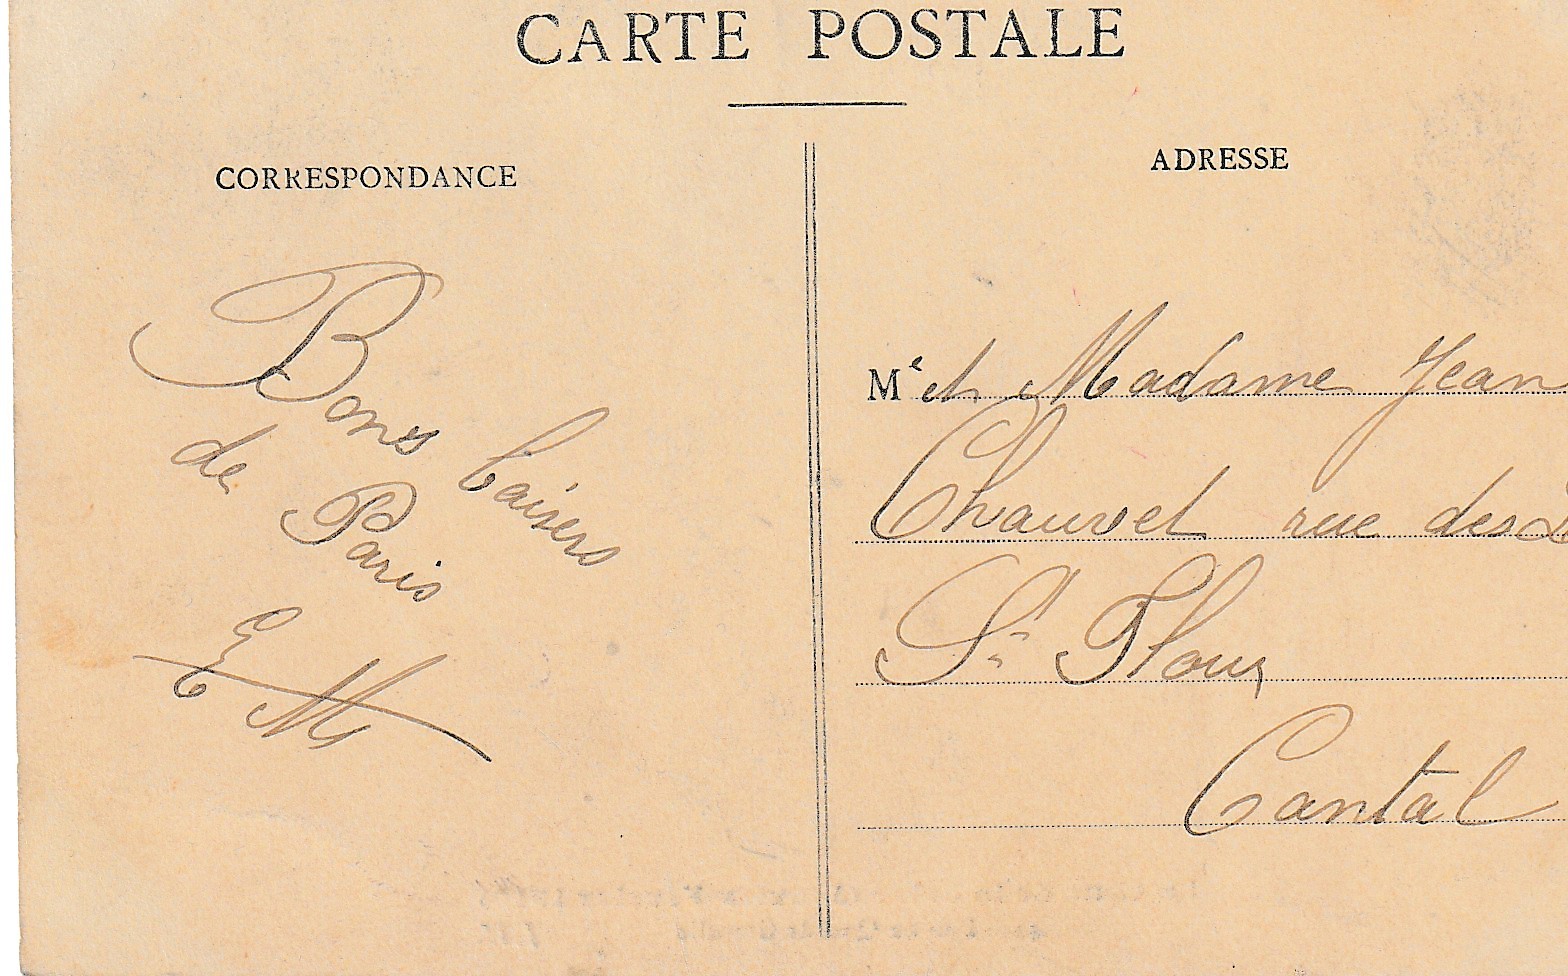 CARTE POSTALE
CORRESPONDANCE
Bons baisers
de Paris
E M
ADRESSE
Mr et Madame Jean
Chauvet rue des
St Flour
Cantal